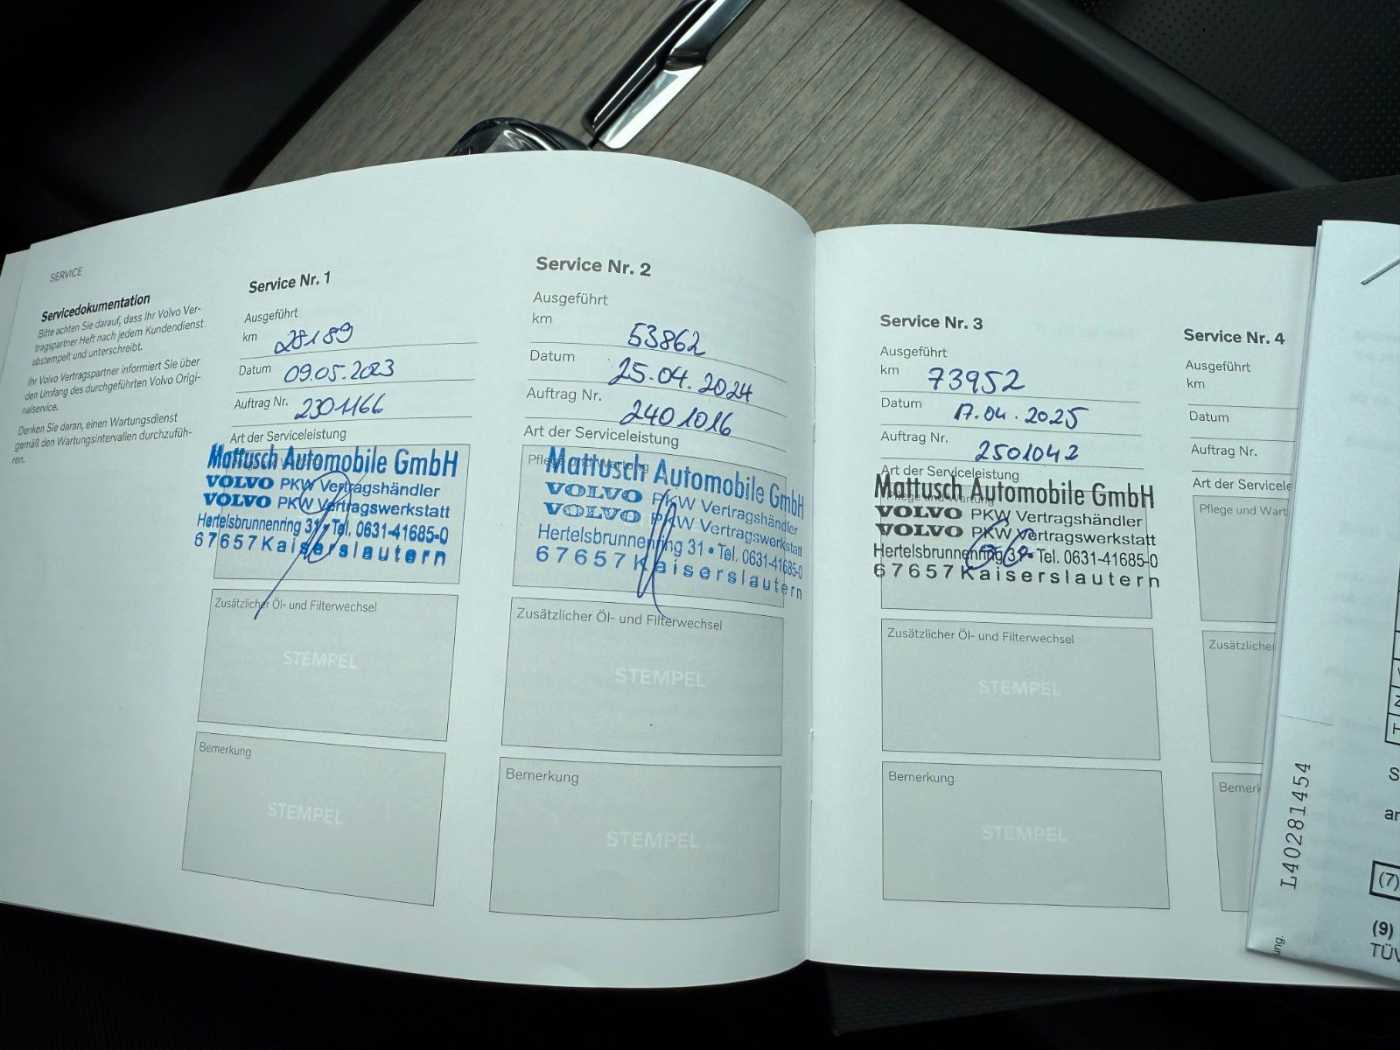 SERVICE
Servicedokumentation
Bitte achten Sie darauf, dass Ihr Volvo Ver-
tragspartner Heft nach jedem Kundendienst
abstempelt und unterschreibt.
Ihr Volvo Vertragspartner informiert Sie über
den Umfang des durchgeführten Volvo Origi-
nalservice.
Denken Sie daran, einen Wartungsdienst
gemäß den Wartungsintervallen durchzufüh-
ren.
Service Nr. 1
Ausgeführt
km 28189
Datum 09.05.2023
Auftrag Nr. 2301166
Art der Serviceleistung
Mattusch Automobile GmbH
VOLVO PKW Vertragshändler
VOLVO PKW Vertragswerkstatt
Hertelsbrunnenring 31 • Tel. 0631-41685-0
67657 Kaiserslautern
Zusätzlicher Öl- und Filterwechsel
STEMPEL
Bemerkung
STEMPEL
Service Nr. 2
Ausgeführt
km 53862
Datum 25.04.2024
Auftrag Nr. 2401016
Art der Serviceleistung
Mattusch Automobile GmbH
VOLVO PKW Vertragshändler
VOLVO PKW Vertragswerkstatt
Hertelsbrunnenring 31 • Tel. 0631-41685-0
67657 Kaiserslautern
Zusätzlicher Öl- und Filterwechsel
STEMPEL
Bemerkung
STEMPEL
Service Nr. 3
Ausgeführt
km 73952
Datum 17.04.2025
Auftrag Nr. 2501042
Art der Serviceleistung
Pflege und Wartung
Mattusch Automobile GmbH
VOLVO PKW Vertragshändler
VOLVO PKW Vertragswerkstatt
Hertelsbrunnenring 31 • Tel. 0631-41685-0
67657 Kaiserslautern
Zusätzlicher Öl- und Filterwechsel
STEMPEL
Bemerkung
STEMPEL
Service Nr. 4
Ausgeführt
km
Datum
Auftrag Nr.
Art der Servicele
Pflege und Wart
Zusätzlicher
Bemerk
L40281454
(7)
(9)
TÜV